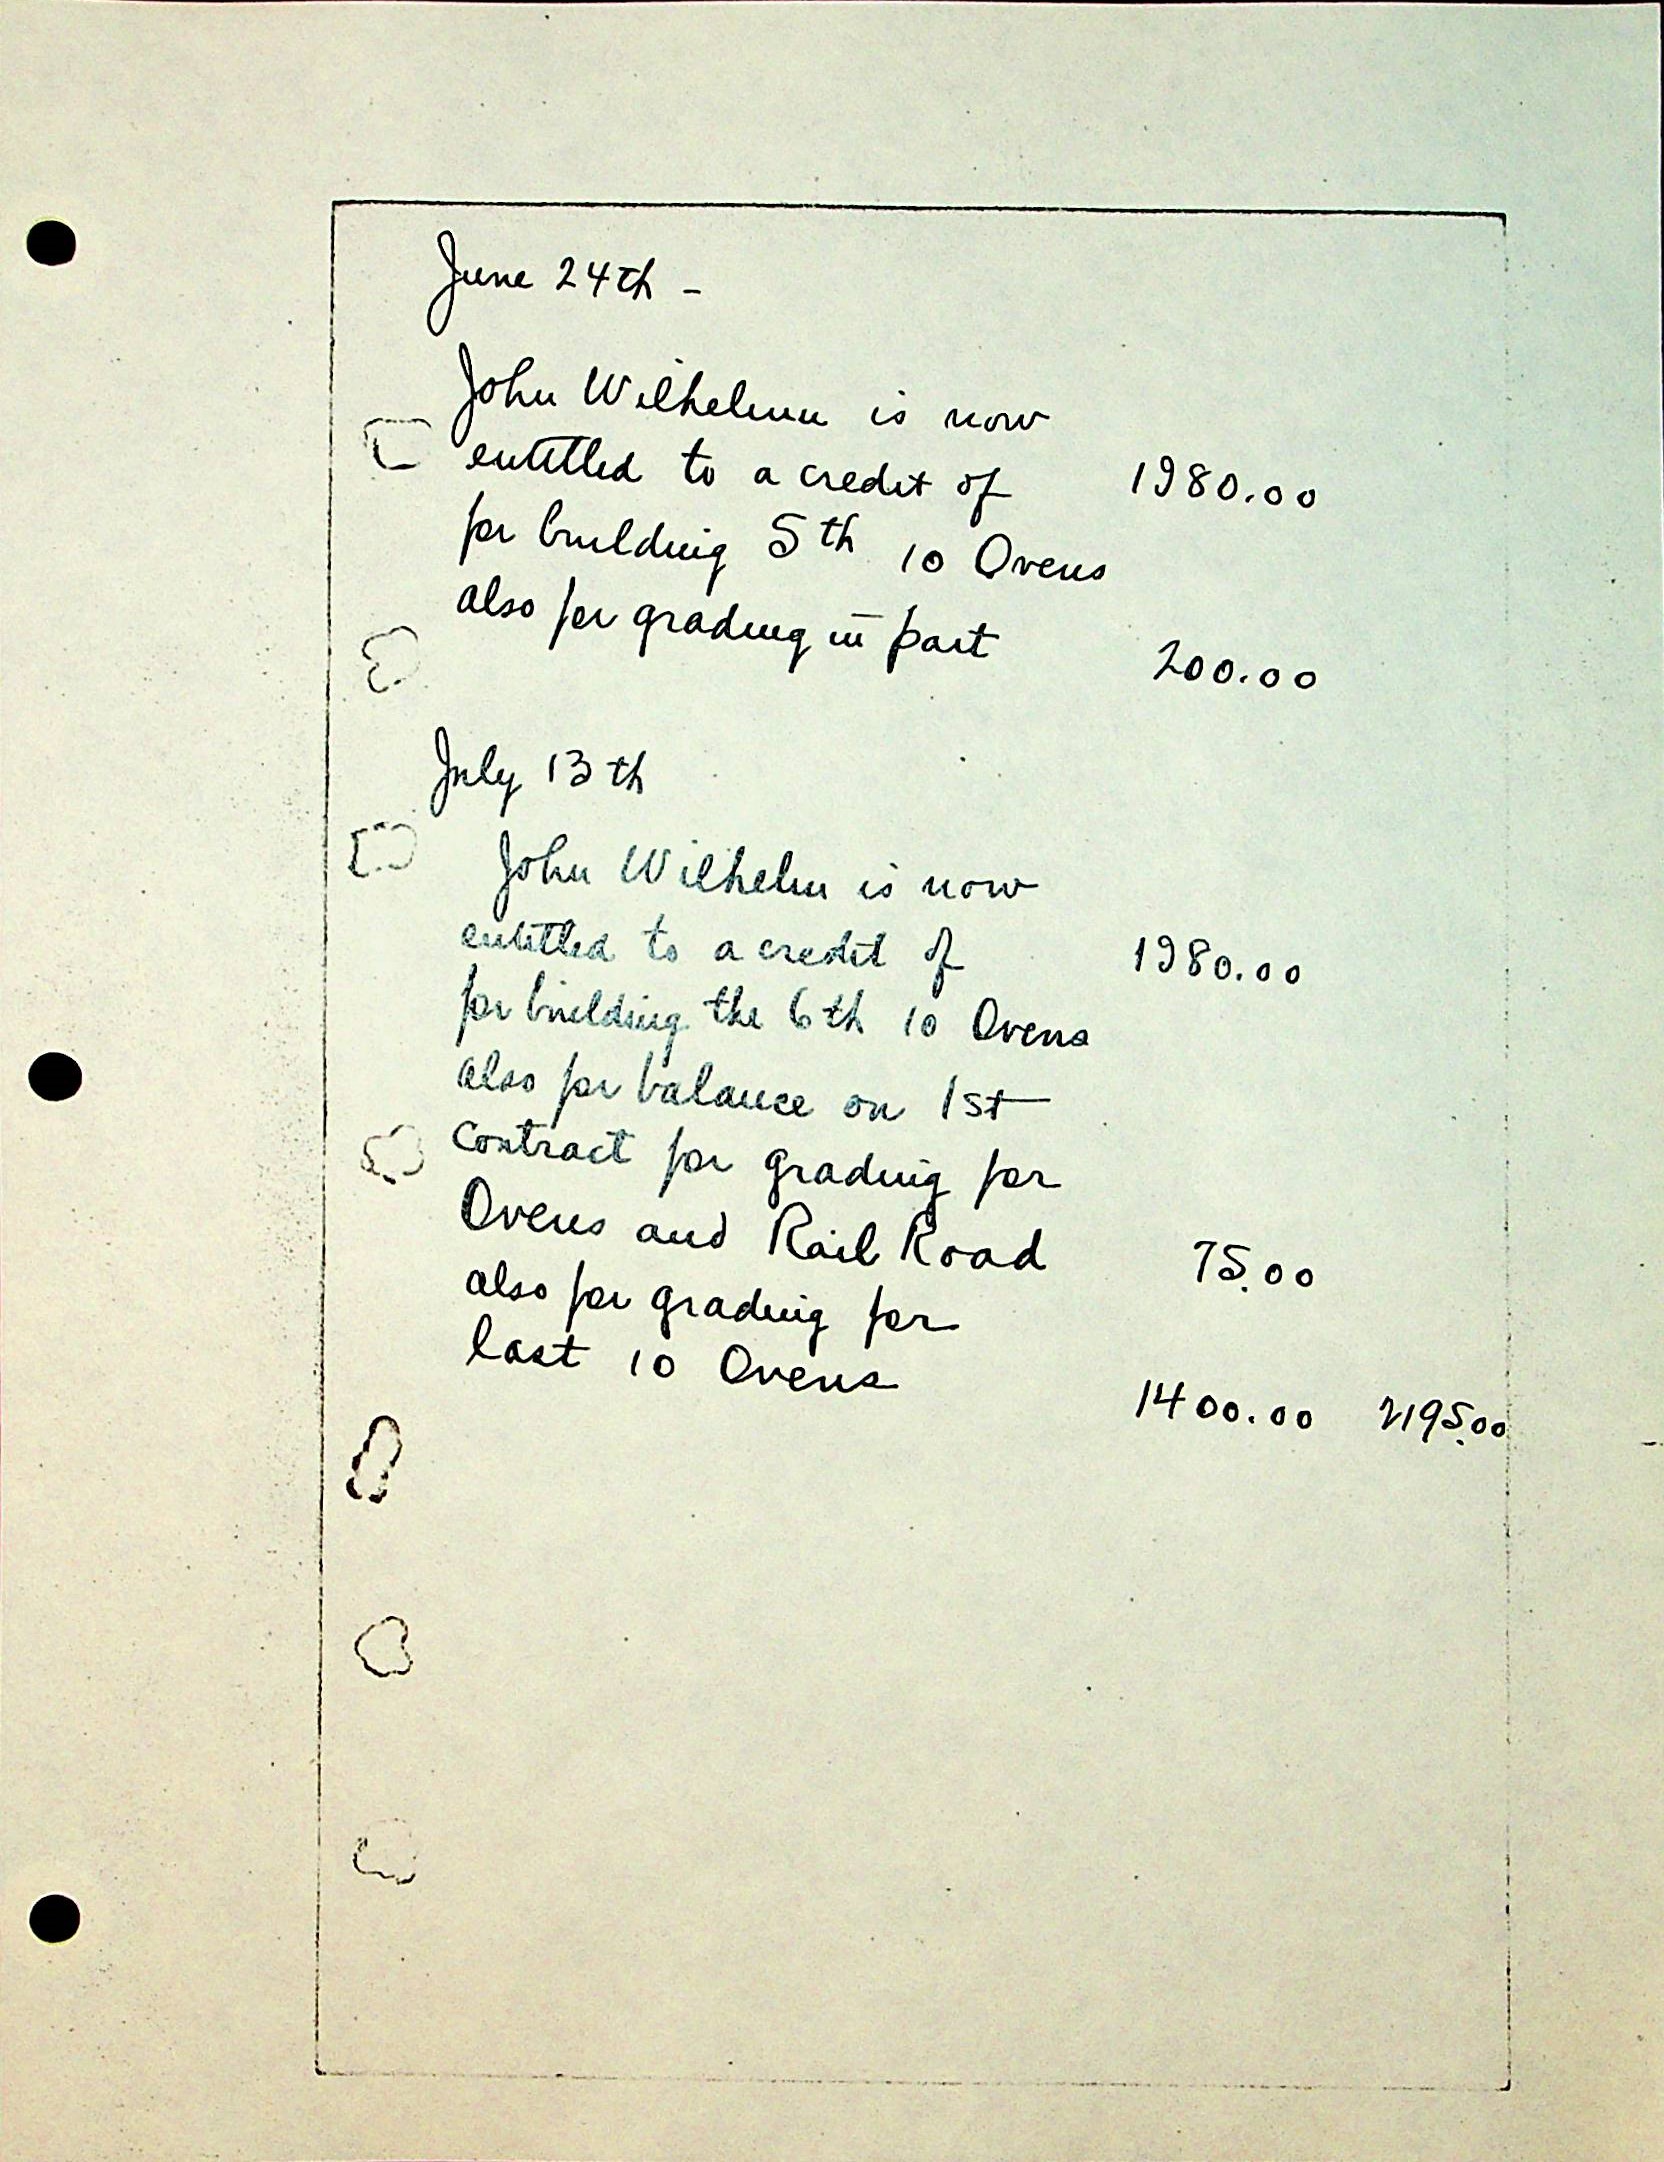 June 24th -
John Wilhelm is now
entitled to a credit of 1980.00
for building 5th 10 Ovens
also for grading in part
200.00
July 13th
John Wilhelm is now
entitled to a credit of 1980.00
for building the 6th 10 Ovens
also for balance on 1st
contract for grading for
Ovens and Rail Road 75.00
also for grading for
last 10 Ovens
1400.00 2195.00